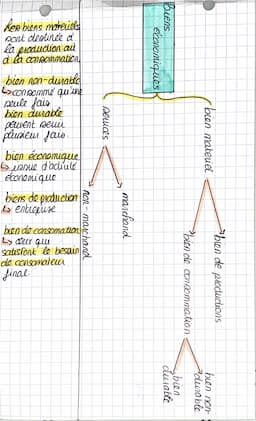 Les biens matériels
sont destinés à
la production ou
à la consommation
bien non-durable
↳ consommé qu'une
seule fois
bien durable
peuvent servir
plusieurs fois.
bien économique
↳ issue d'activité
économique
biens de production
↳ entreprise
bien de consomation
↳ ceux qui
satisfont le besoin
de consomateur
final
Biens
économiques
bien matériel
services
bien de productions
bien de consommation
marchand
non-marchand
bien non-
durable
bien
durable